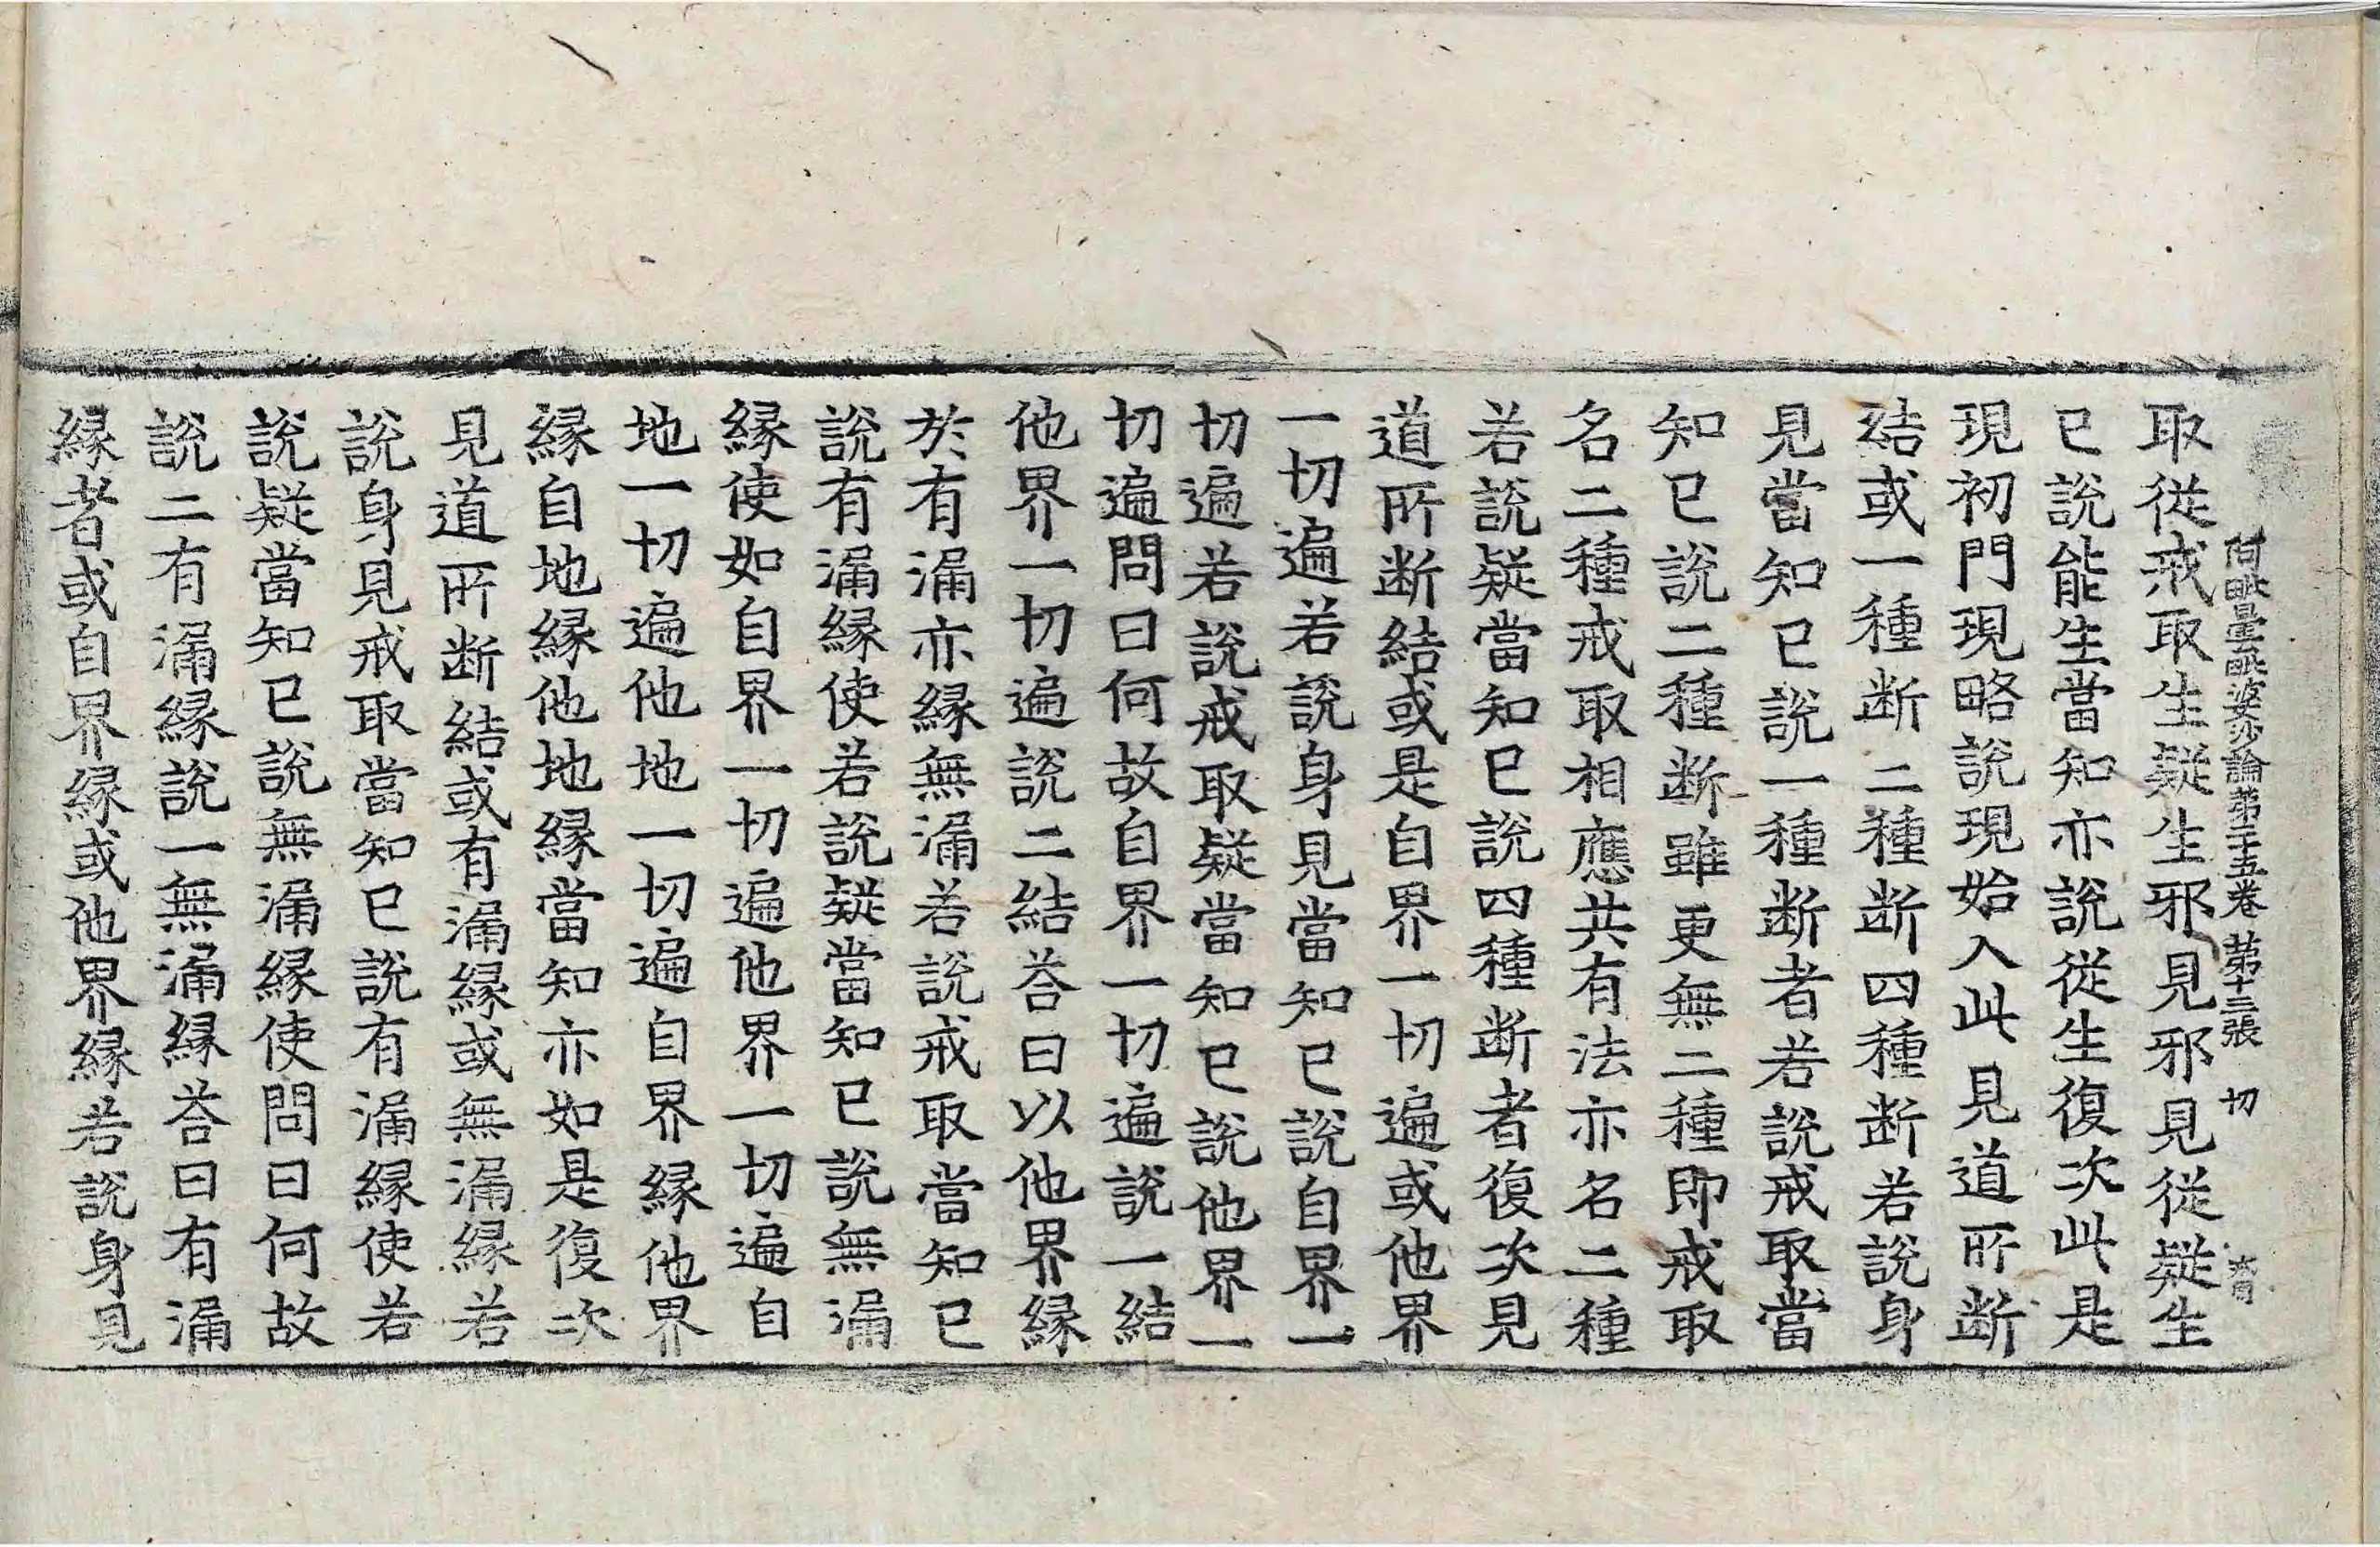 阿毗曇毗婆沙論第二十五卷 第十三張 切
取從戒取生疑生邪見邪見從疑生
已說能生當知亦說從生復次此是
現初門現略說現始入此見道所断
結或一種断二種断四種断若說身
見當知已說一種断者若說戒取當
知已說二種断雖更無二種即戒取
名二種戒取相應共有法亦名二種
若說疑當知已說四種断者復次見
道所断結或是自界一切遍或他界
一切遍若說身見當知已說自界一
切遍若說戒取疑當知已說他界一
切遍問曰何故自界一切遍說一結
他界一切遍說二結荅曰以他界縁
於有漏亦縁無漏若說戒取當知已
說有漏縁使若說疑當知已說無漏
縁使如自界一切遍他界一切遍自
地一切遍他地一切遍自界縁他界
縁自地縁他地縁當知亦如是復次
見道所断結或有漏縁或無漏縁若
說身見戒取當知已說有漏縁使若
說疑當知已說無漏縁使問曰何故
說二有漏縁說一無漏縁荅曰有漏
縁者或自界縁或他界縁若說身見